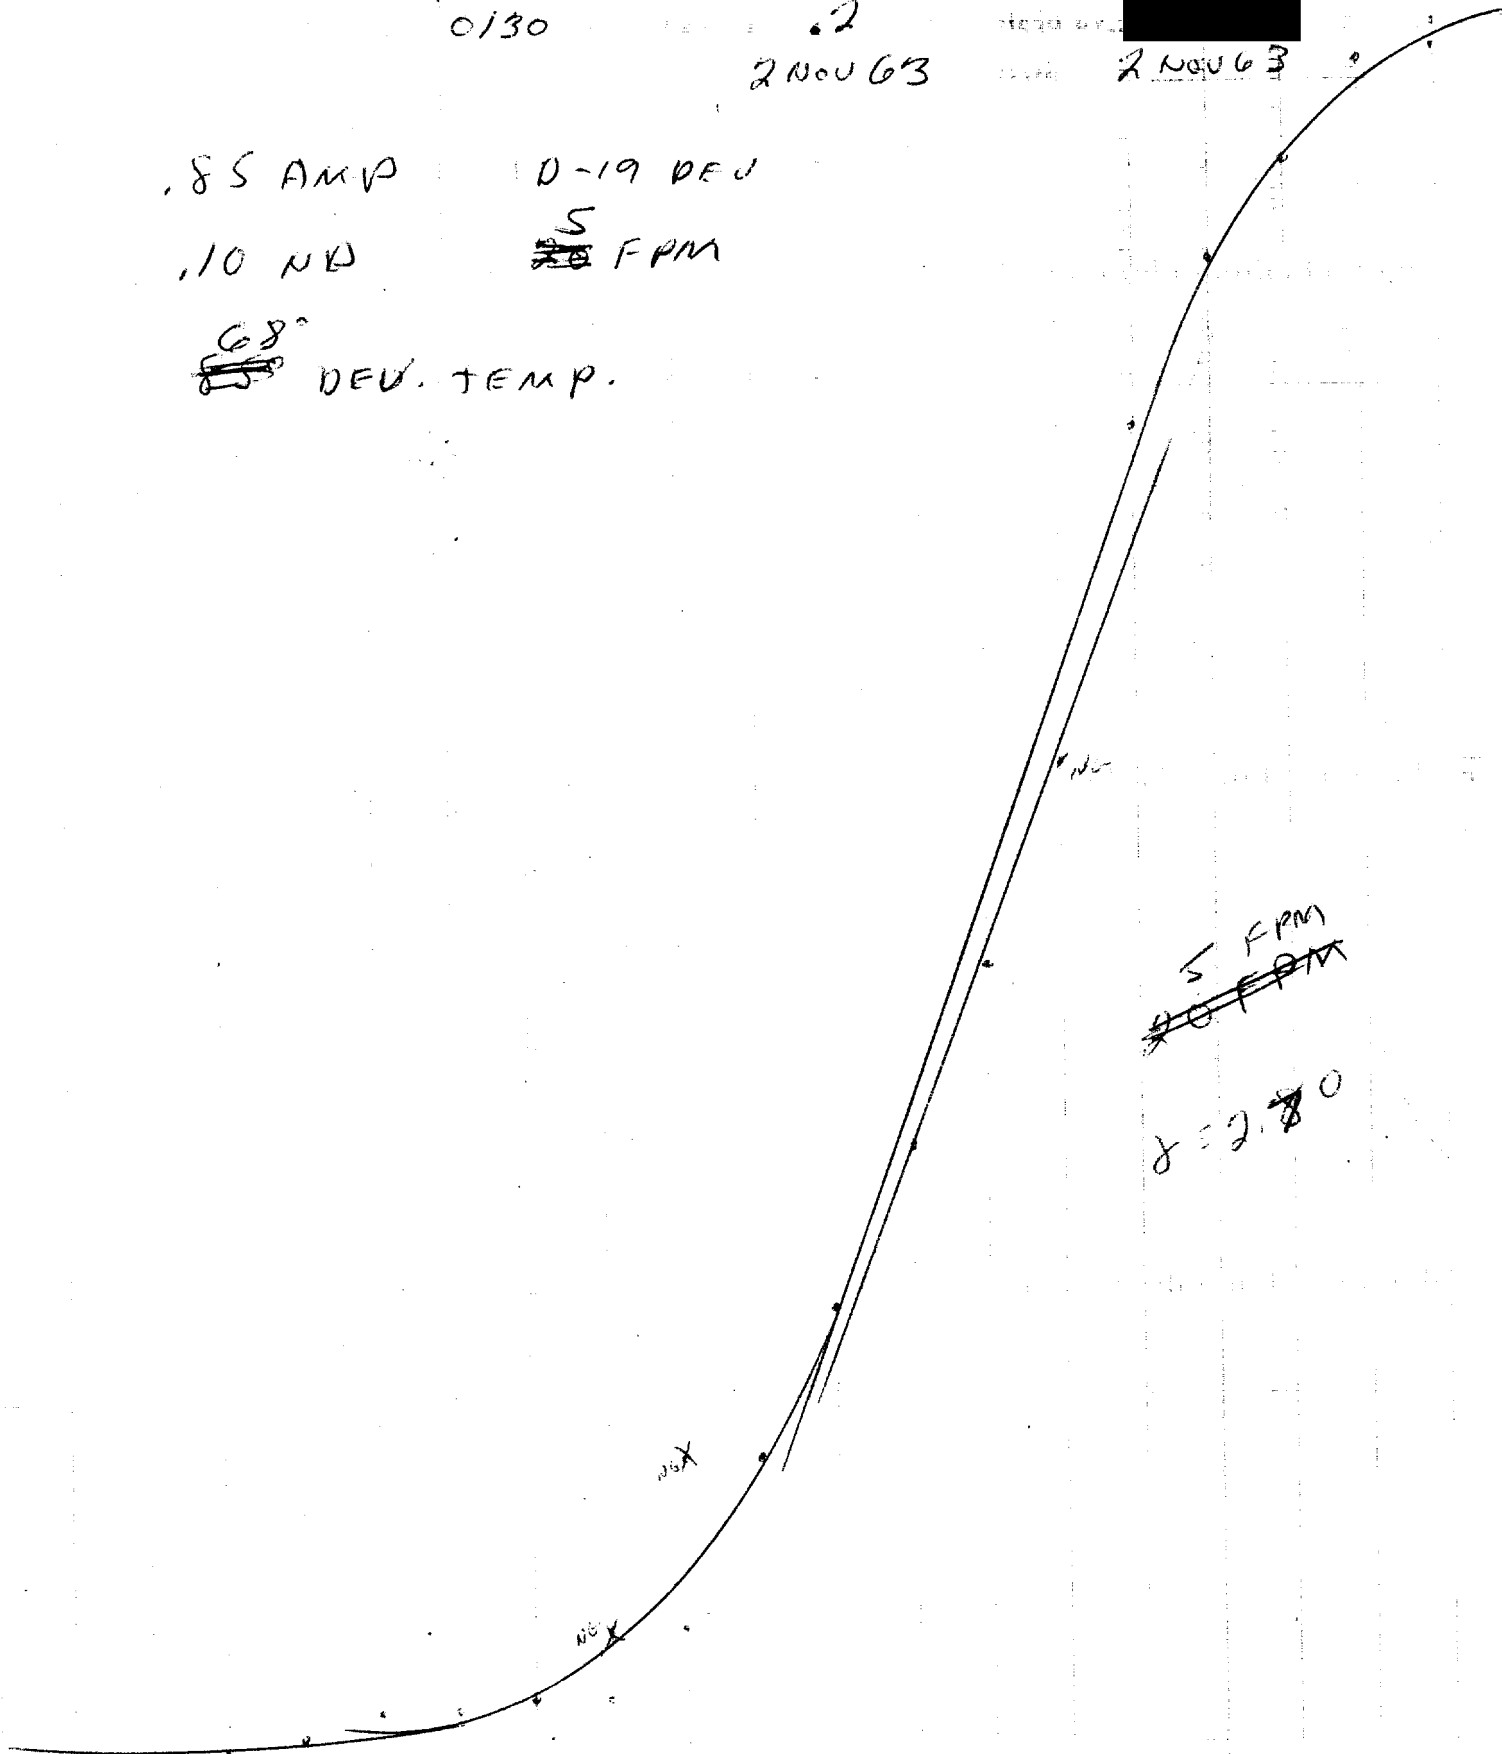 0130 .2
2 NOV 63 2 NOV 63
.85 AMP D-19 DEV
5
.10 ND 20 FPM
68°
DEV. TEMP.
NG
5 FPM
20 FPM
γ = 2.80
NG X
NG X